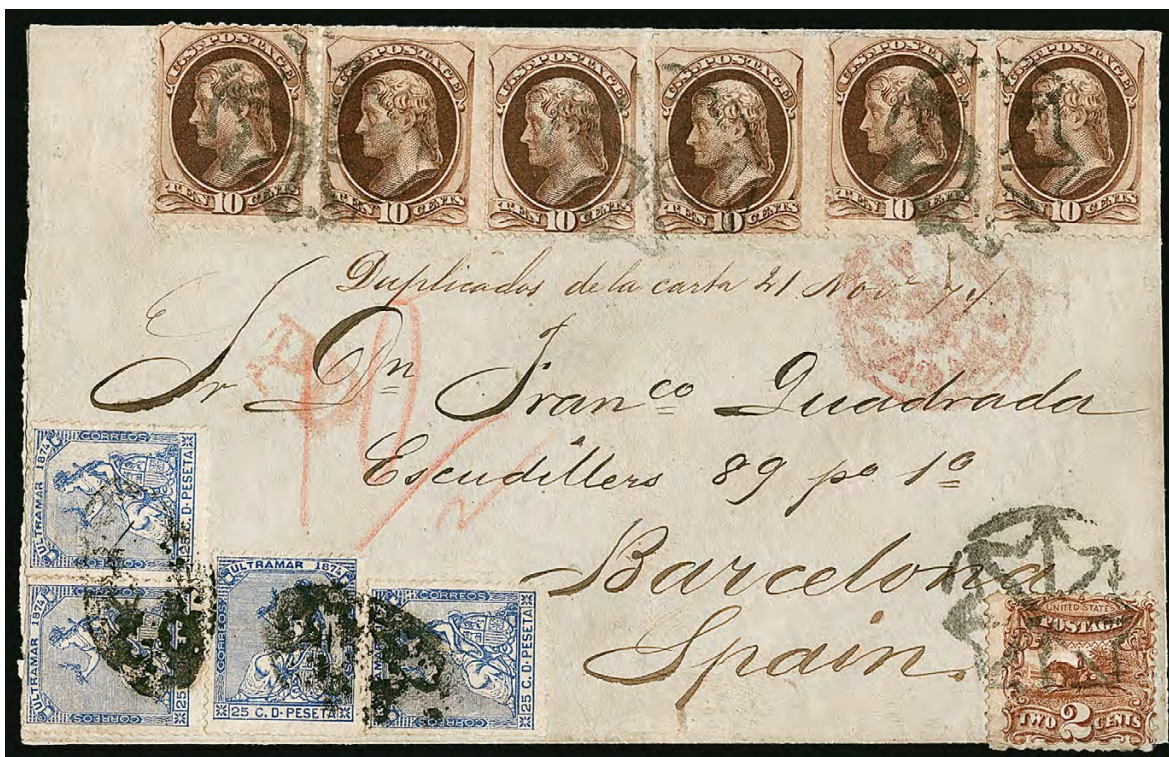 U.S. POSTAGE
TEN 10 CENTS
U.S. POSTAGE
TEN 10 CENTS
U.S. POSTAGE
TEN 10 CENTS
U.S. POSTAGE
TEN 10 CENTS
U.S. POSTAGE
TEN 10 CENTS
U.S. POSTAGE
TEN 10 CENTS
Duplicados de la carta 21 Nov
Sr Dn Franco Quadrada
Escudillers 89 po 1o
Barcelona
Spain.
ULTRAMAR 1874
CORREOS
25 C. D- PESETA
ULTRAMAR 1874
CORREOS
25 C.
ULTRAMAR 1874
CORREOS
25 C. D- PESETA
CORREOS
25 C. D- PESETA
UNITED STATES
POSTAGE
TWO 2 CENTS